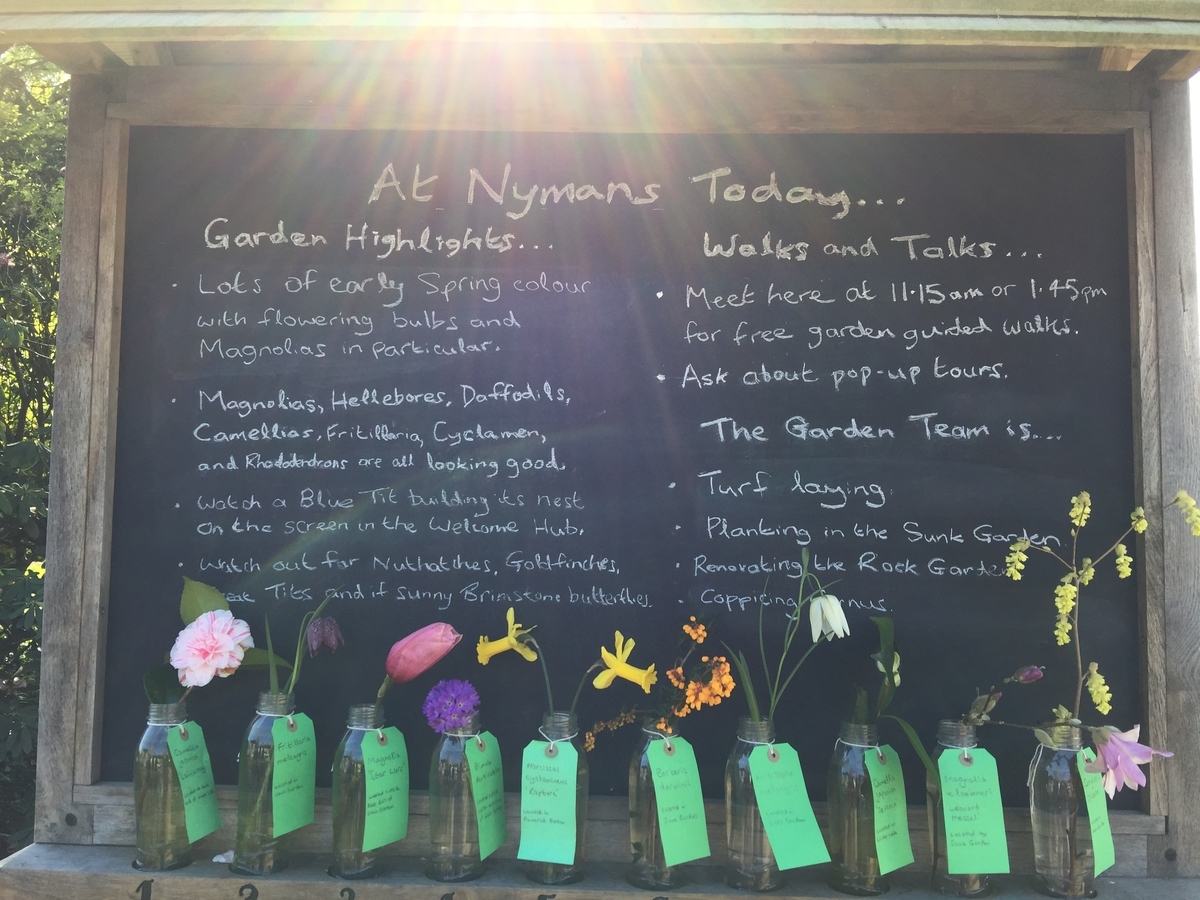 At Nymans Today...
Garden Highlights...
• Lots of early Spring colour
with flowering bulbs and
Magnolias in particular.
• Magnolias, Hellebores, Daffodils,
Camellias, Fritillaria, Cyclamen,
and Rhododendrons are all looking good.
• Watch a Blue Tit building its nest
on the screen in the Welcome Hub.
• Watch out for Nuthatches, Goldfinches,
Tits and if sunny Brimstone butterflies.
Walks and Talks...
• Meet here at 11.15am or 1.45pm
for free garden guided walks.
• Ask about pop-up tours.
The Garden Team is...
• Turf laying.
• Planting in the Sunk Garden.
• Renovating the Rock Garden
• Coppicing
Fritillaria
meleagris
Magnolia
Narcissus
cyclamineus
Berberis
Magnolia
Leonard
Messel
1 2 3